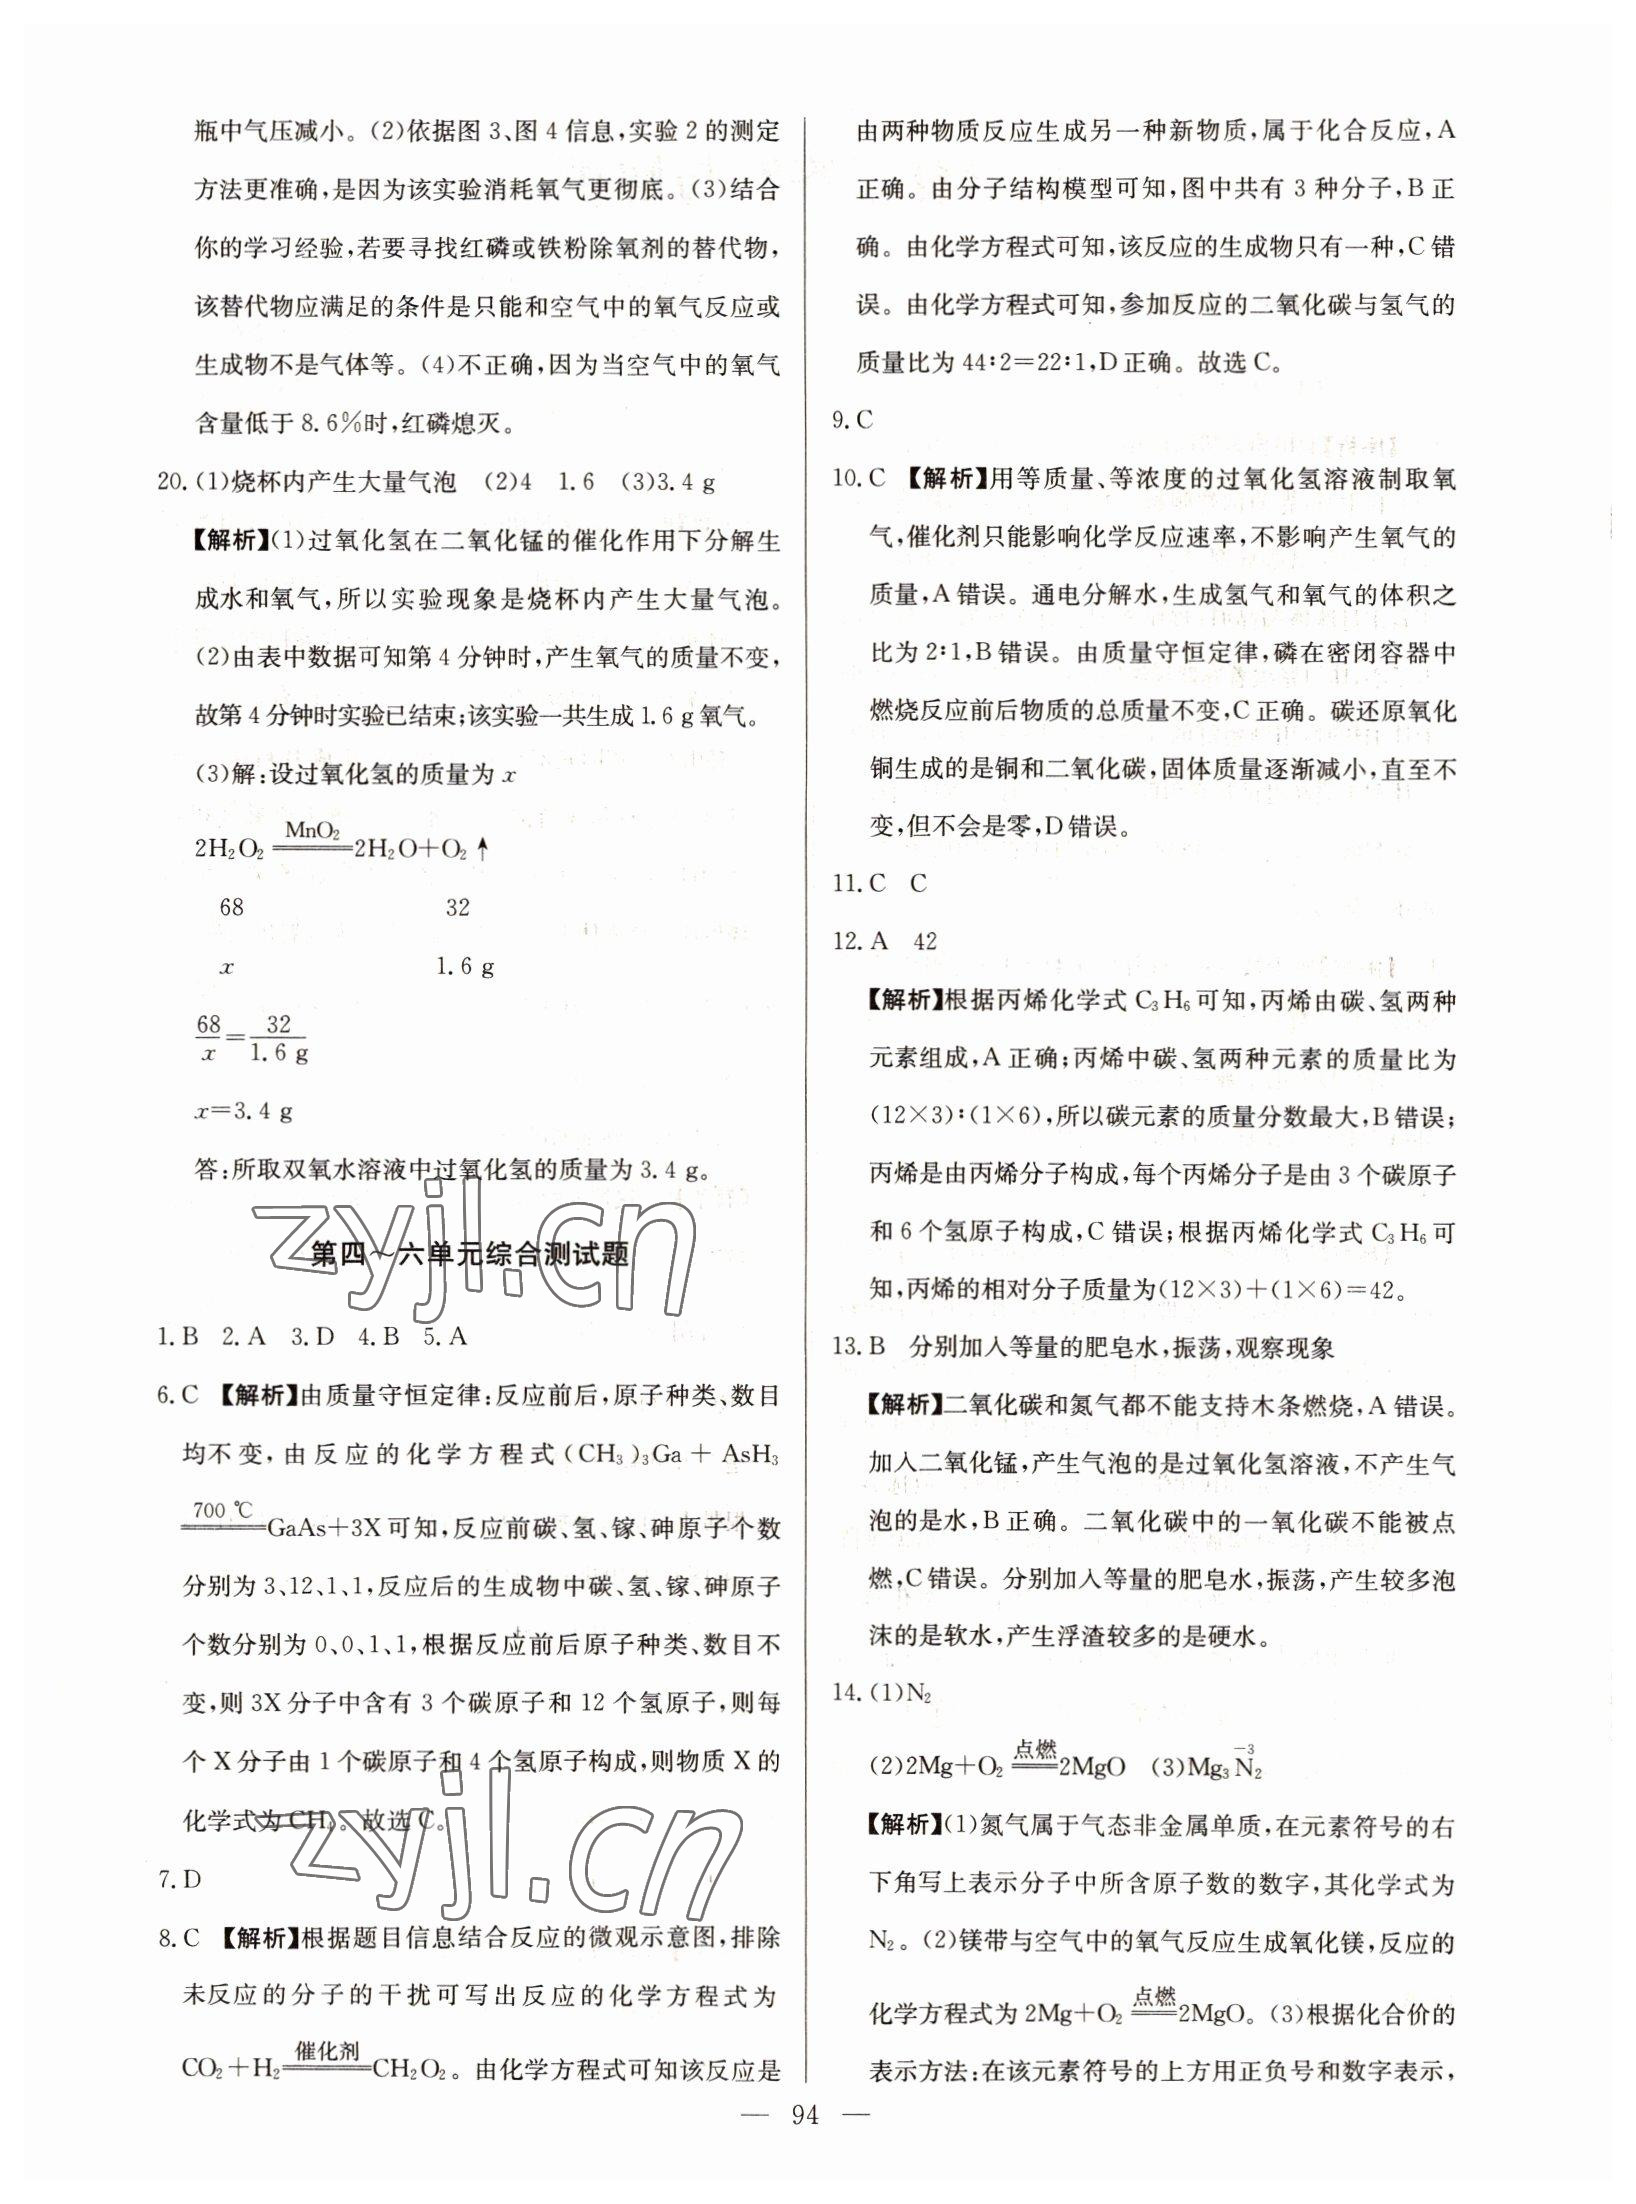 瓶中气压减小。(2)依据图 3、图 4 信息,实验 2 的测定
方法更准确,是因为该实验消耗氧气更彻底。(3)结合
你的学习经验,若要寻找红磷或铁粉除氧剂的替代物,
该替代物应满足的条件是只能和空气中的氧气反应或
生成物不是气体等。(4)不正确,因为当空气中的氧气
含量低于 8.6%时,红磷熄灭。
20.(1)烧杯内产生大量气泡 (2)4 1.6 (3)3.4 g
【解析】(1)过氧化氢在二氧化锰的催化作用下分解生
成水和氧气,所以实验现象是烧杯内产生大量气泡。
(2)由表中数据可知第 4 分钟时,产生氧气的质量不变,
故第 4 分钟时实验已结束;该实验一共生成 1.6 g 氧气。
(3)解:设过氧化氢的质量为 x
MnO₂
2H₂O₂══2H₂O+O₂↑
68 32
x 1.6 g
68/x=32/1.6 g
x=3.4 g
答:所取双氧水溶液中过氧化氢的质量为 3.4 g。
zyjl.cn
第四~六单元综合测试题
1.B 2.A 3.D 4.B 5.A
6.C 【解析】由质量守恒定律:反应前后,原子种类、数目
均不变,由反应的化学方程式(CH₃)₃Ga+AsH₃
700 ℃
══GaAs+3X 可知,反应前碳、氢、镓、砷原子个数
分别为 3、12、1、1,反应后的生成物中碳、氢、镓、砷原子
个数分别为 0、0、1、1,根据反应前后原子种类、数目不
变,则 3X 分子中含有 3 个碳原子和 12 个氢原子,则每
个 X 分子由 1 个碳原子和 4 个氢原子构成,则物质 X 的
化学式为 CH₄。故选 C。
zyjl.cn
7.D
8.C 【解析】根据题目信息结合反应的微观示意图,排除
未反应的分子的干扰可写出反应的化学方程式为
催化剂
CO₂+H₂══CH₂O₂。由化学方程式可知该反应是
由两种物质反应生成另一种新物质,属于化合反应,A
正确。由分子结构模型可知,图中共有 3 种分子,B 正
确。由化学方程式可知,该反应的生成物只有一种,C 错
误。由化学方程式可知,参加反应的二氧化碳与氢气的
质量比为 44∶2=22∶1,D 正确。故选 C。
9.C
10.C 【解析】用等质量、等浓度的过氧化氢溶液制取氧
气,催化剂只能影响化学反应速率,不影响产生氧气的
质量,A 错误。通电分解水,生成氢气和氧气的体积之
比为 2∶1,B 错误。由质量守恒定律,磷在密闭容器中
燃烧反应前后物质的总质量不变,C 正确。碳还原氧化
铜生成的是铜和二氧化碳,固体质量逐渐减小,直至不
变,但不会是零,D 错误。
11.C C
12.A 42
【解析】根据丙烯化学式 C₃H₆ 可知,丙烯由碳、氢两种
元素组成,A 正确;丙烯中碳、氢两种元素的质量比为
(12×3)∶(1×6),所以碳元素的质量分数最大,B 错误;
丙烯是由丙烯分子构成,每个丙烯分子是由 3 个碳原子
和 6 个氢原子构成,C 错误;根据丙烯化学式 C₃H₆ 可
知,丙烯的相对分子质量为(12×3)+(1×6)=42。
13.B 分别加入等量的肥皂水,振荡,观察现象
【解析】二氧化碳和氮气都不能支持木条燃烧,A 错误。
加入二氧化锰,产生气泡的是过氧化氢溶液,不产生气
泡的是水,B 正确。二氧化碳中的一氧化碳不能被点
燃,C 错误。分别加入等量的肥皂水,振荡,产生较多泡
沫的是软水,产生浮渣较多的是硬水。
14.(1)N₂
点燃 -3
(2)2Mg+O₂══2MgO (3)Mg₃N₂
【解析】(1)氮气属于气态非金属单质,在元素符号的右
下角写上表示分子中所含原子数的数字,其化学式为
N₂。(2)镁带与空气中的氧气反应生成氧化镁,反应的
点燃
化学方程式为 2Mg+O₂══2MgO。(3)根据化合价的
表示方法:在该元素符号的上方用正负号和数字表示,
— 94 —